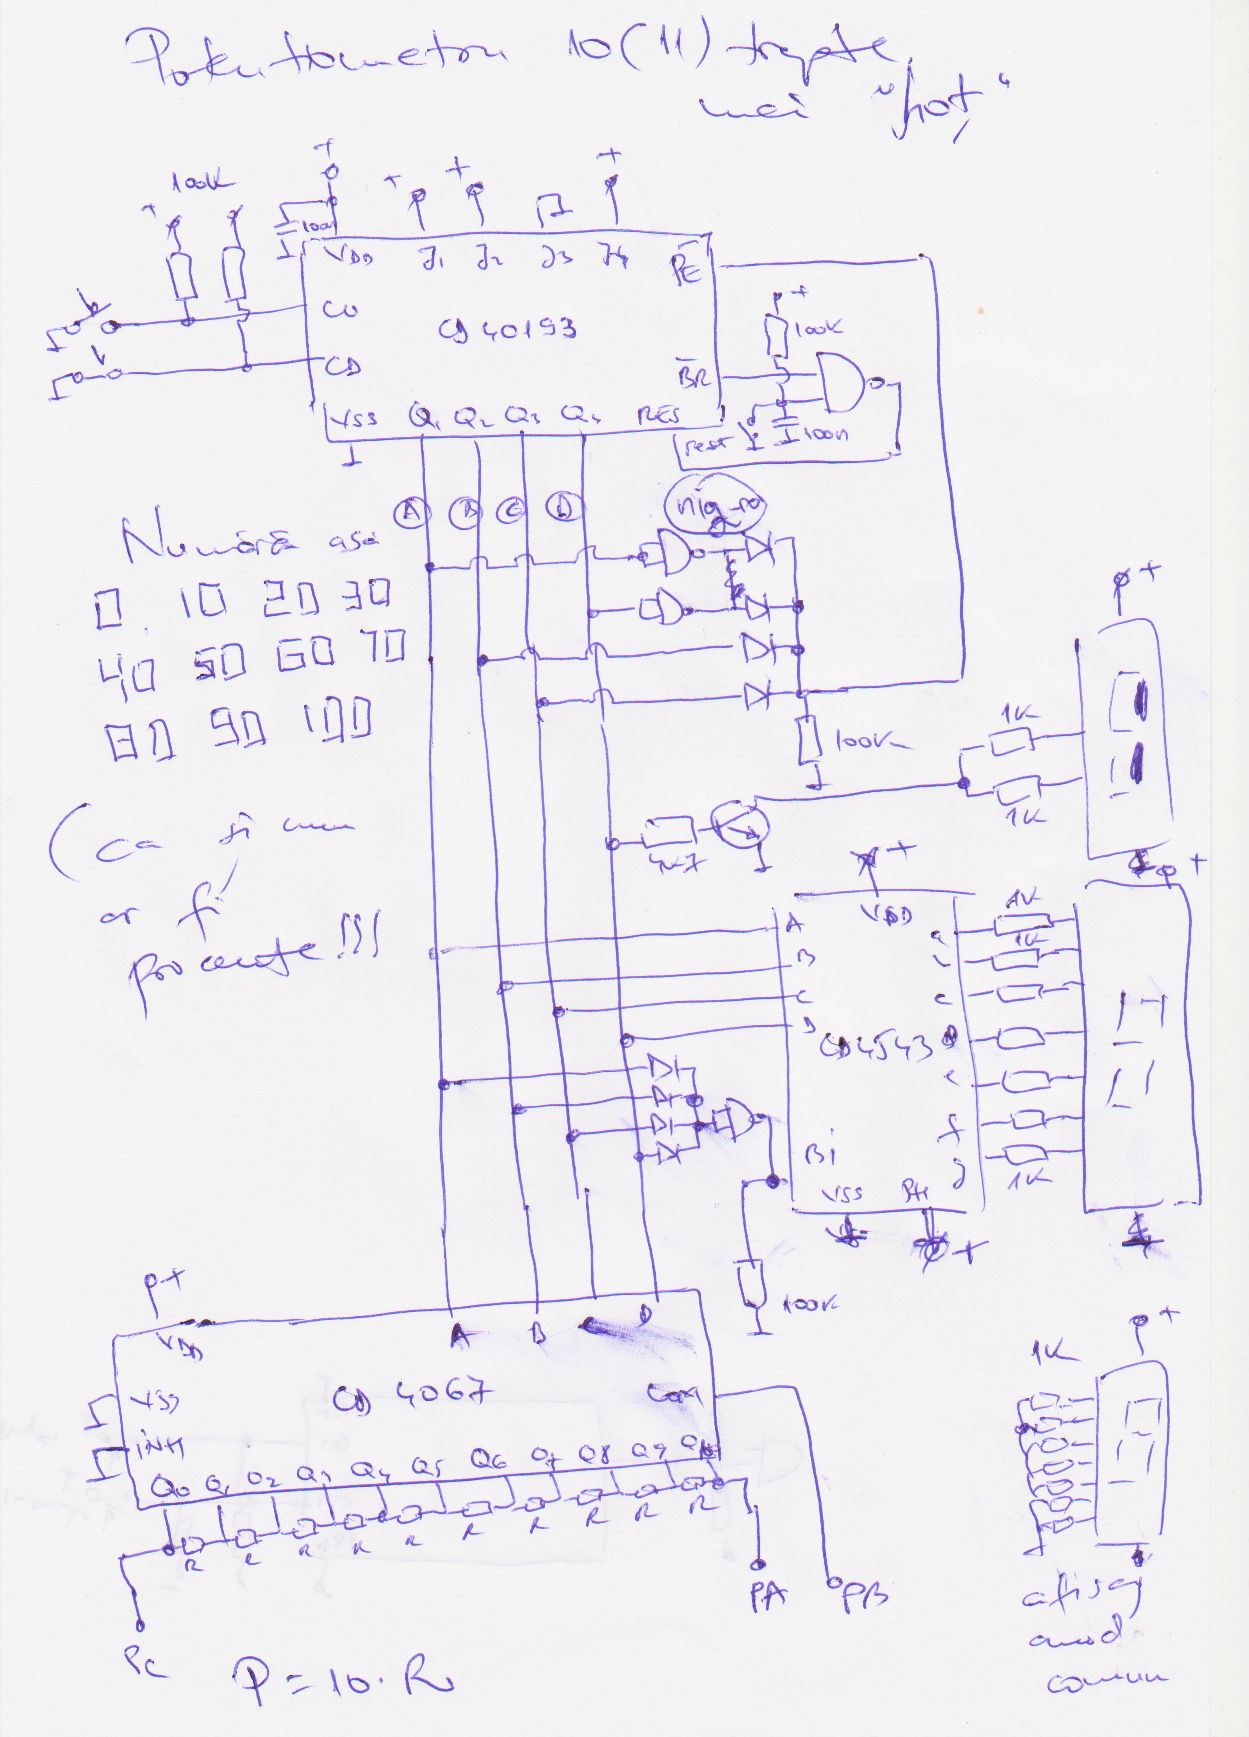 Potentiometru 10(11) trepte
mai "hoț"
+
100K
+
+
+
+
+
100n
VDD J1 J2 J3 J4 PE
CU
CD 40193
+
100K
CD
BR
VSS Q1 Q2 Q3 Q4 RES
rest
100n
A B C D
Numără așa
0 10 20 30
40 50 60 70
80 90 100
+
1K
100K
1K
4K7
(ca și cum
ar fi
procente!!!
+
+
VDD
1K
A
a
1K
B
b
C
c
D
CD4543
d
e
f
Bi
g
1K
VSS PH
+
100K
+
VDD
A B C D
+
1K
VSS
CD 4067
COM
INH
Q0 Q1 Q2 Q3 Q4 Q5 Q6 Q7 Q8 Q9 Q10
R R R R R R R R R R
PA
PB
PC
P = 10 · R
afișaj
anod
comun